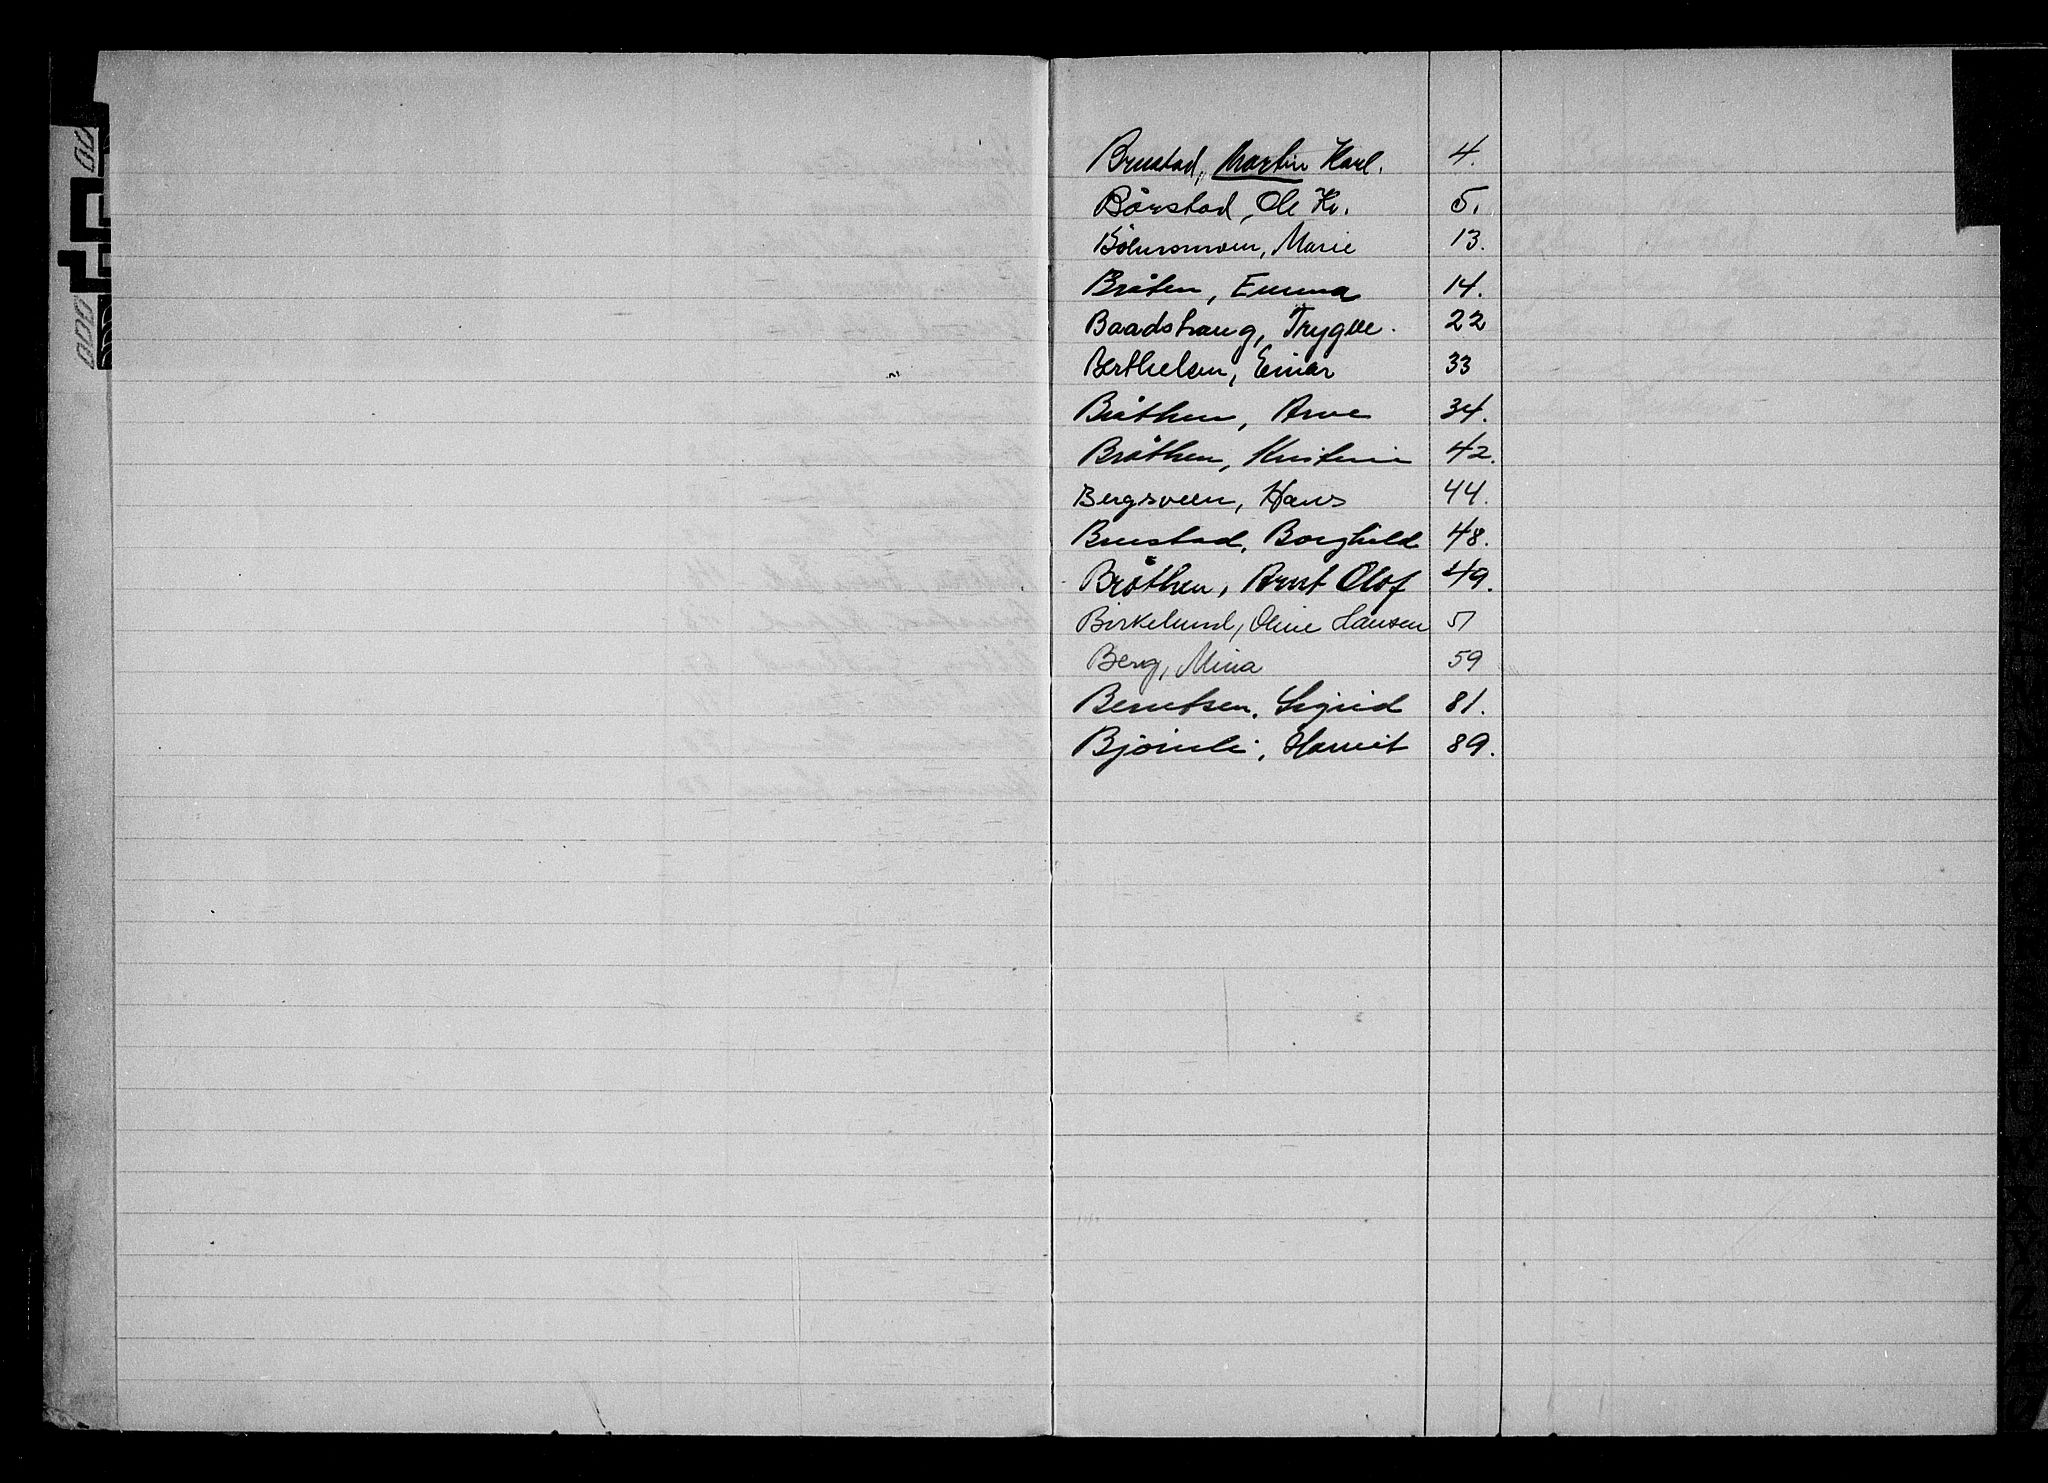 Brustad, Martin Karl. 4.
Børstad, Ole Kr. 5.
Marie 13.
Bråten, Emma 14.
Baadshaug, Trygve. 22
Berthelsen, Einar 33
Bråthen, Arve 34.
Bråthen, Kristine 42.
Bergsveen, Hans 44.
Brustad, Borghild 48.
Bråthen, Arnt Olof 49.
Birkelund, Oline Hansen 51
Berg, Mina 59
Berntsen, Sigrid 81.
Bjørnli, Harriet 89.